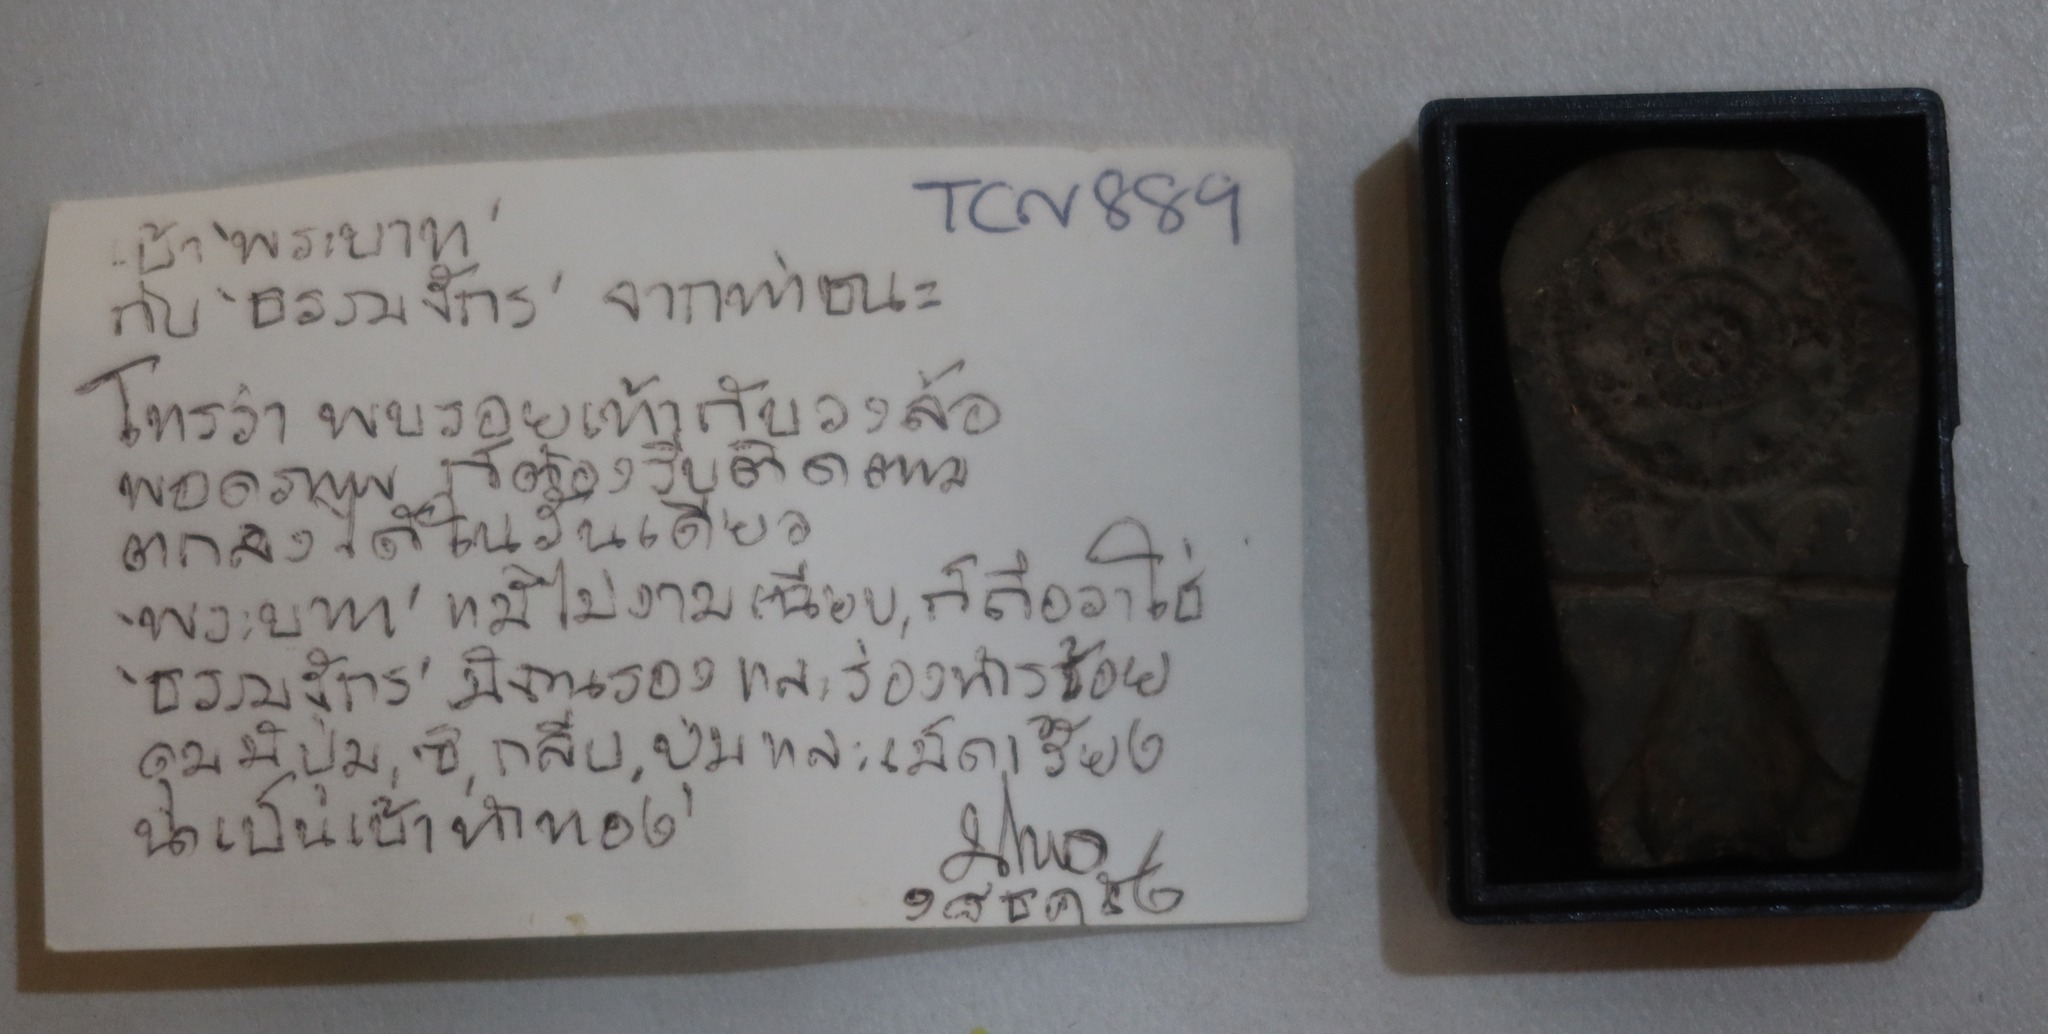 TCN889
เบ้า 'พระบาท'
กับ 'ธรรมจักร' จากท่าชนะ
โทรว่า พบรอยเท้ากับวงล้อ
พอดรูพบ ก็ต้องรีบติดตาม
ตกลงได้ในวันเดียว
'พระบาท' แม้ไม่งามเฉียบ, ก็ถือว่าใช่
'ธรรมจักร' มี รอง และร่อง ร้อย
ดุมมีปุ่ม, ซี่, กลีบ, ปุ่มและเม็ดเรียง
นี่เป็นเบ้าทำทอง'